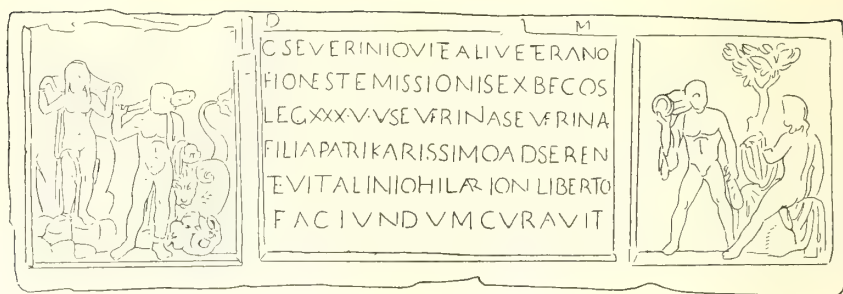 D M
C SEVERINIO VITEALI VETERANO
HONESTE MISSIONIS EX BF COS
LEG XXX·V·V SEVERINA SEVERINA
FILIA PATRI KARISSIMO ADSEREN
TE VITALINIO HILARION LIBERTO
FACIVNDVM CVRAVIT